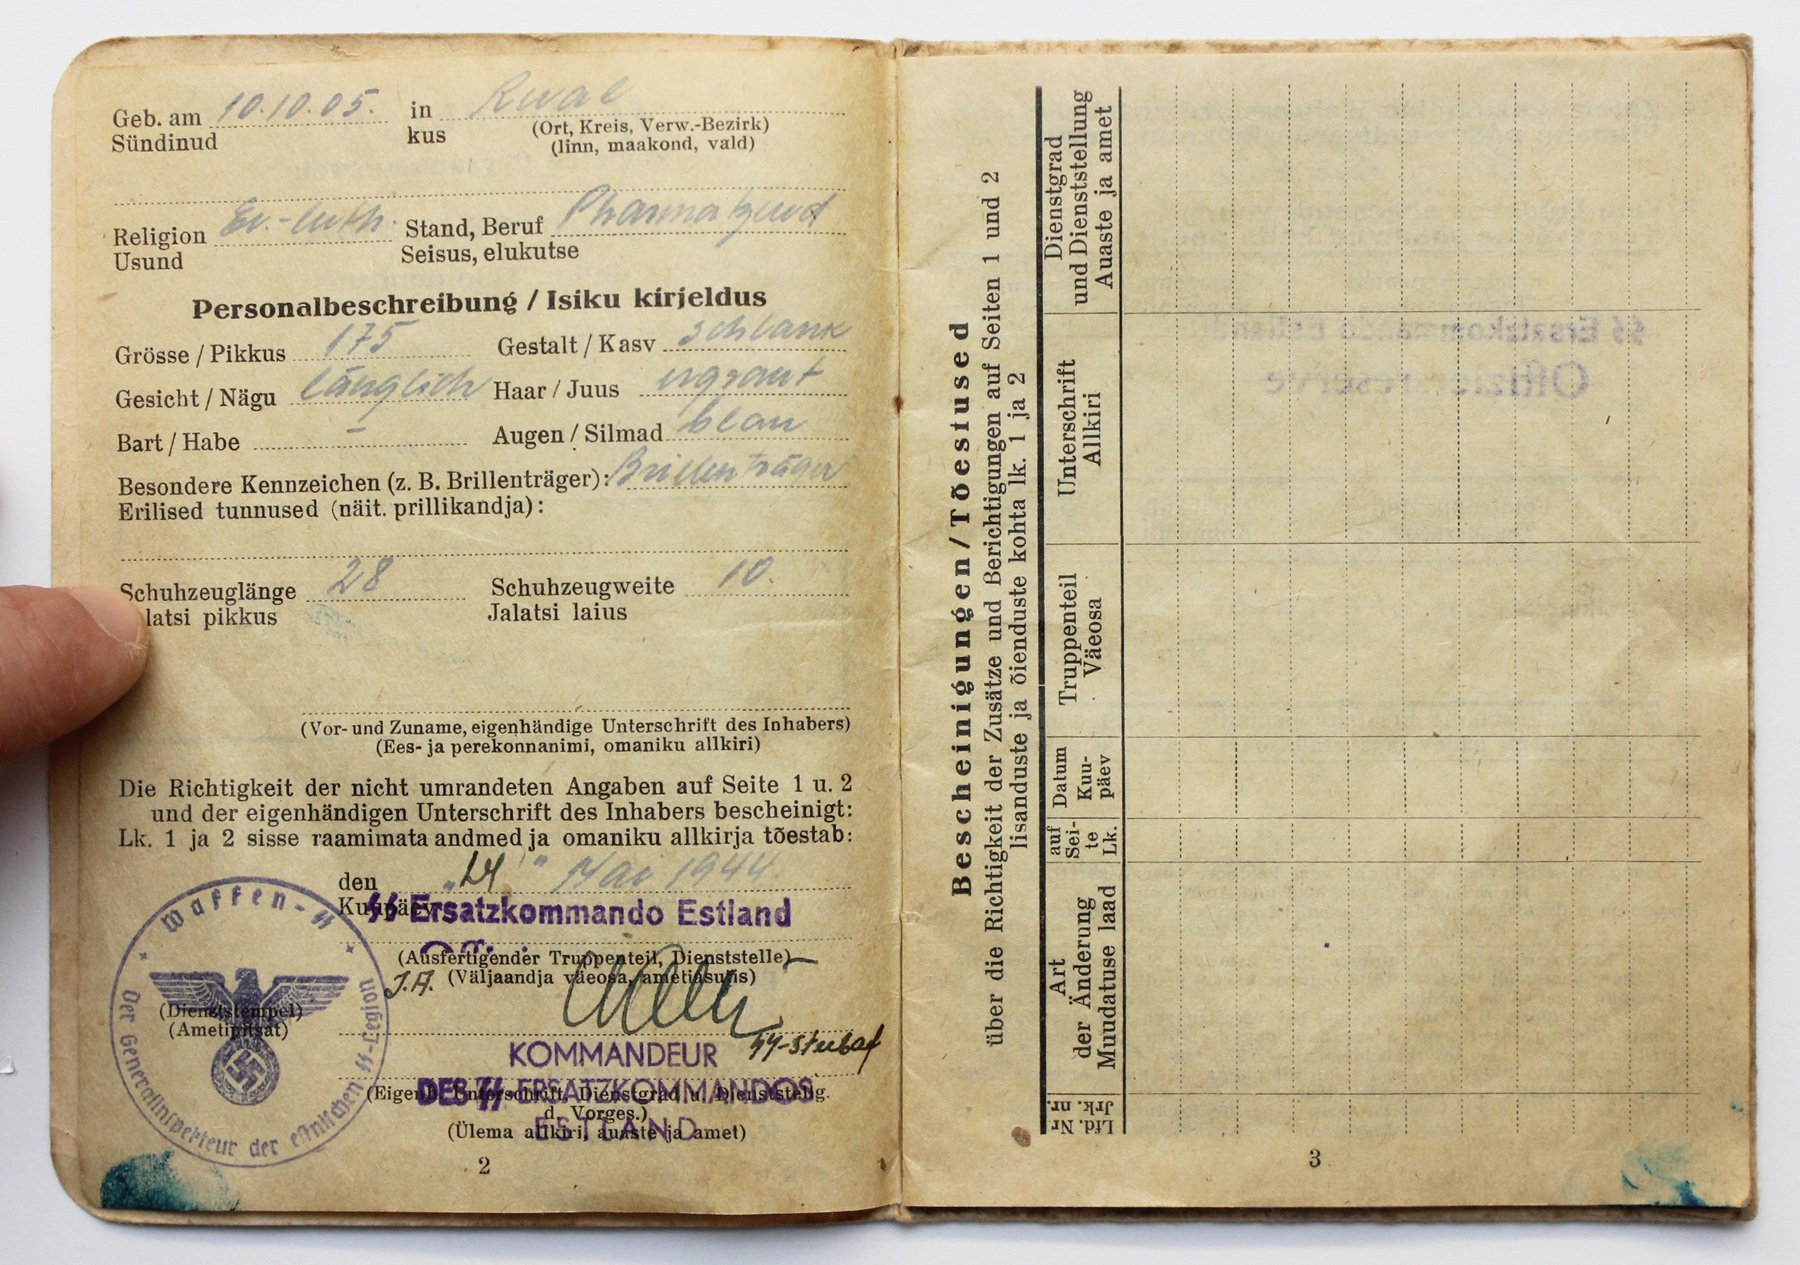 Geb. am 10.10.05. in Reval
Sündinud kus (Ort, Kreis, Verw.-Bezirk)
(linn, maakond, vald)
Religion Ev.-luth. Stand, Beruf
Usund Seisus, elukutse
Personalbeschreibung / Isiku kirjeldus
Grösse / Pikkus 175 Gestalt / Kasv schlank
Gesicht / Nägu länglich Haar / Juus ergraut
Bart / Habe – Augen / Silmad blau
Besondere Kennzeichen (z. B. Brillenträger): Brillenträger
Erilised tunnused (näit. prillikandja):
Schuhzeuglänge 28 Schuhzeugweite 10.
latsi pikkus Jalatsi laius
(Vor- und Zuname, eigenhändige Unterschrift des Inhabers)
(Ees- ja perekonnanimi, omaniku allkiri)
Die Richtigkeit der nicht umrandeten Angaben auf Seite 1 u. 2
und der eigenhändigen Unterschrift des Inhabers bescheinigt:
Lk. 1 ja 2 sisse raamimata andmed ja omaniku allkirja tõestab:
den „24“ Mai 1944
Kuupäev
SS Ersatzkommando Estland
(Ausfertigender Truppenteil, Dienststelle)
J.A. (Väljaandja väeosa, ametiasutis)
Waffen-SS
Der Generalinspekteur der estnischen SS-Legion
(Dienststempel)
(Ametipitsat)
SS-Stubaf
KOMMANDEUR
DES SS ERSATZKOMMANDOS
ESTLAND
(Eigenh. Unterschrift, Dienstgrad u. Dienststellg.
d. Vorges.)
(Ülema allkiri, auaste ja amet)
2
Bescheinigungen / Tõestused
über die Richtigkeit der Zusätze und Berichtigungen auf Seiten 1 und 2
lisanduste ja õienduste kohta lk. 1 ja 2
Lfd. Nr.
Jrk. nr.
Art
der Änderung
Muudatuse laad
auf
Sei-
te
Lk.
Datum
Kuu-
päev
Truppenteil
Väeosa
Unterschrift
Allkiri
Dienstgrad
und Dienststellung
Auaste ja amet
SS Ersatzkommando Estland
Offiziersreserve
3